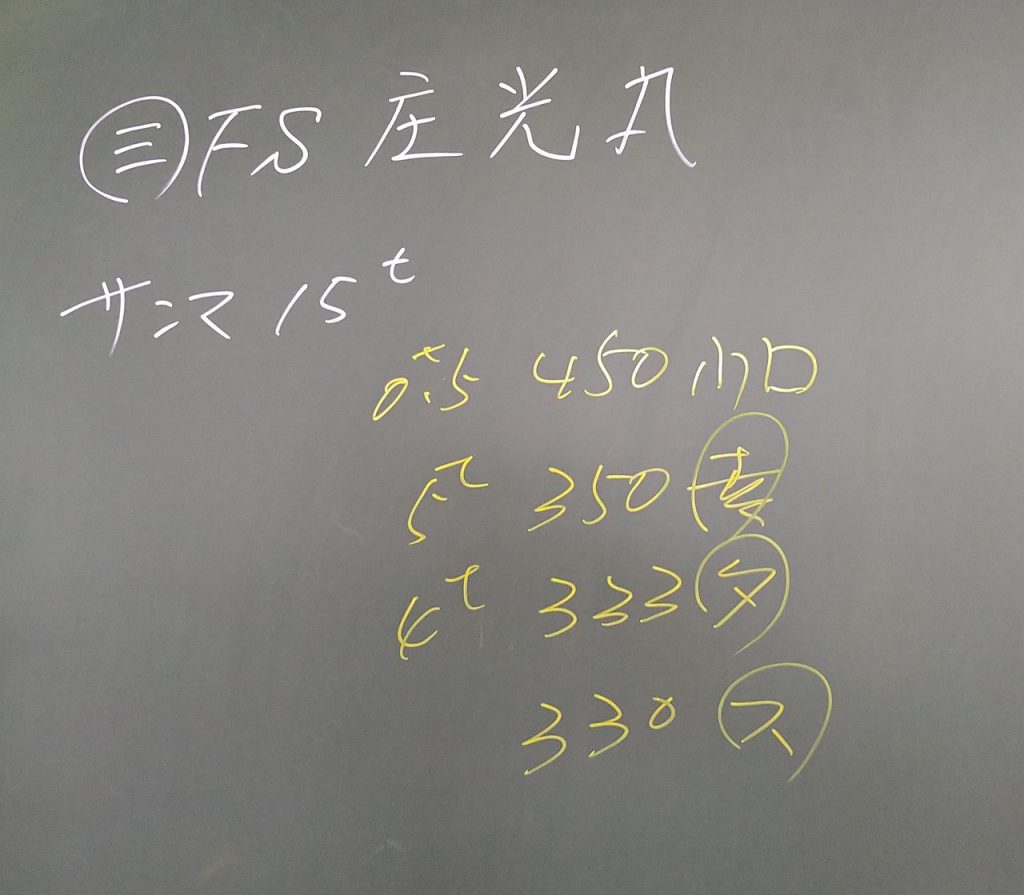 ㊂FS 庄光丸
サンマ 15t
0.5t 450 小口
5t 350
4t 333 タ
330 ス